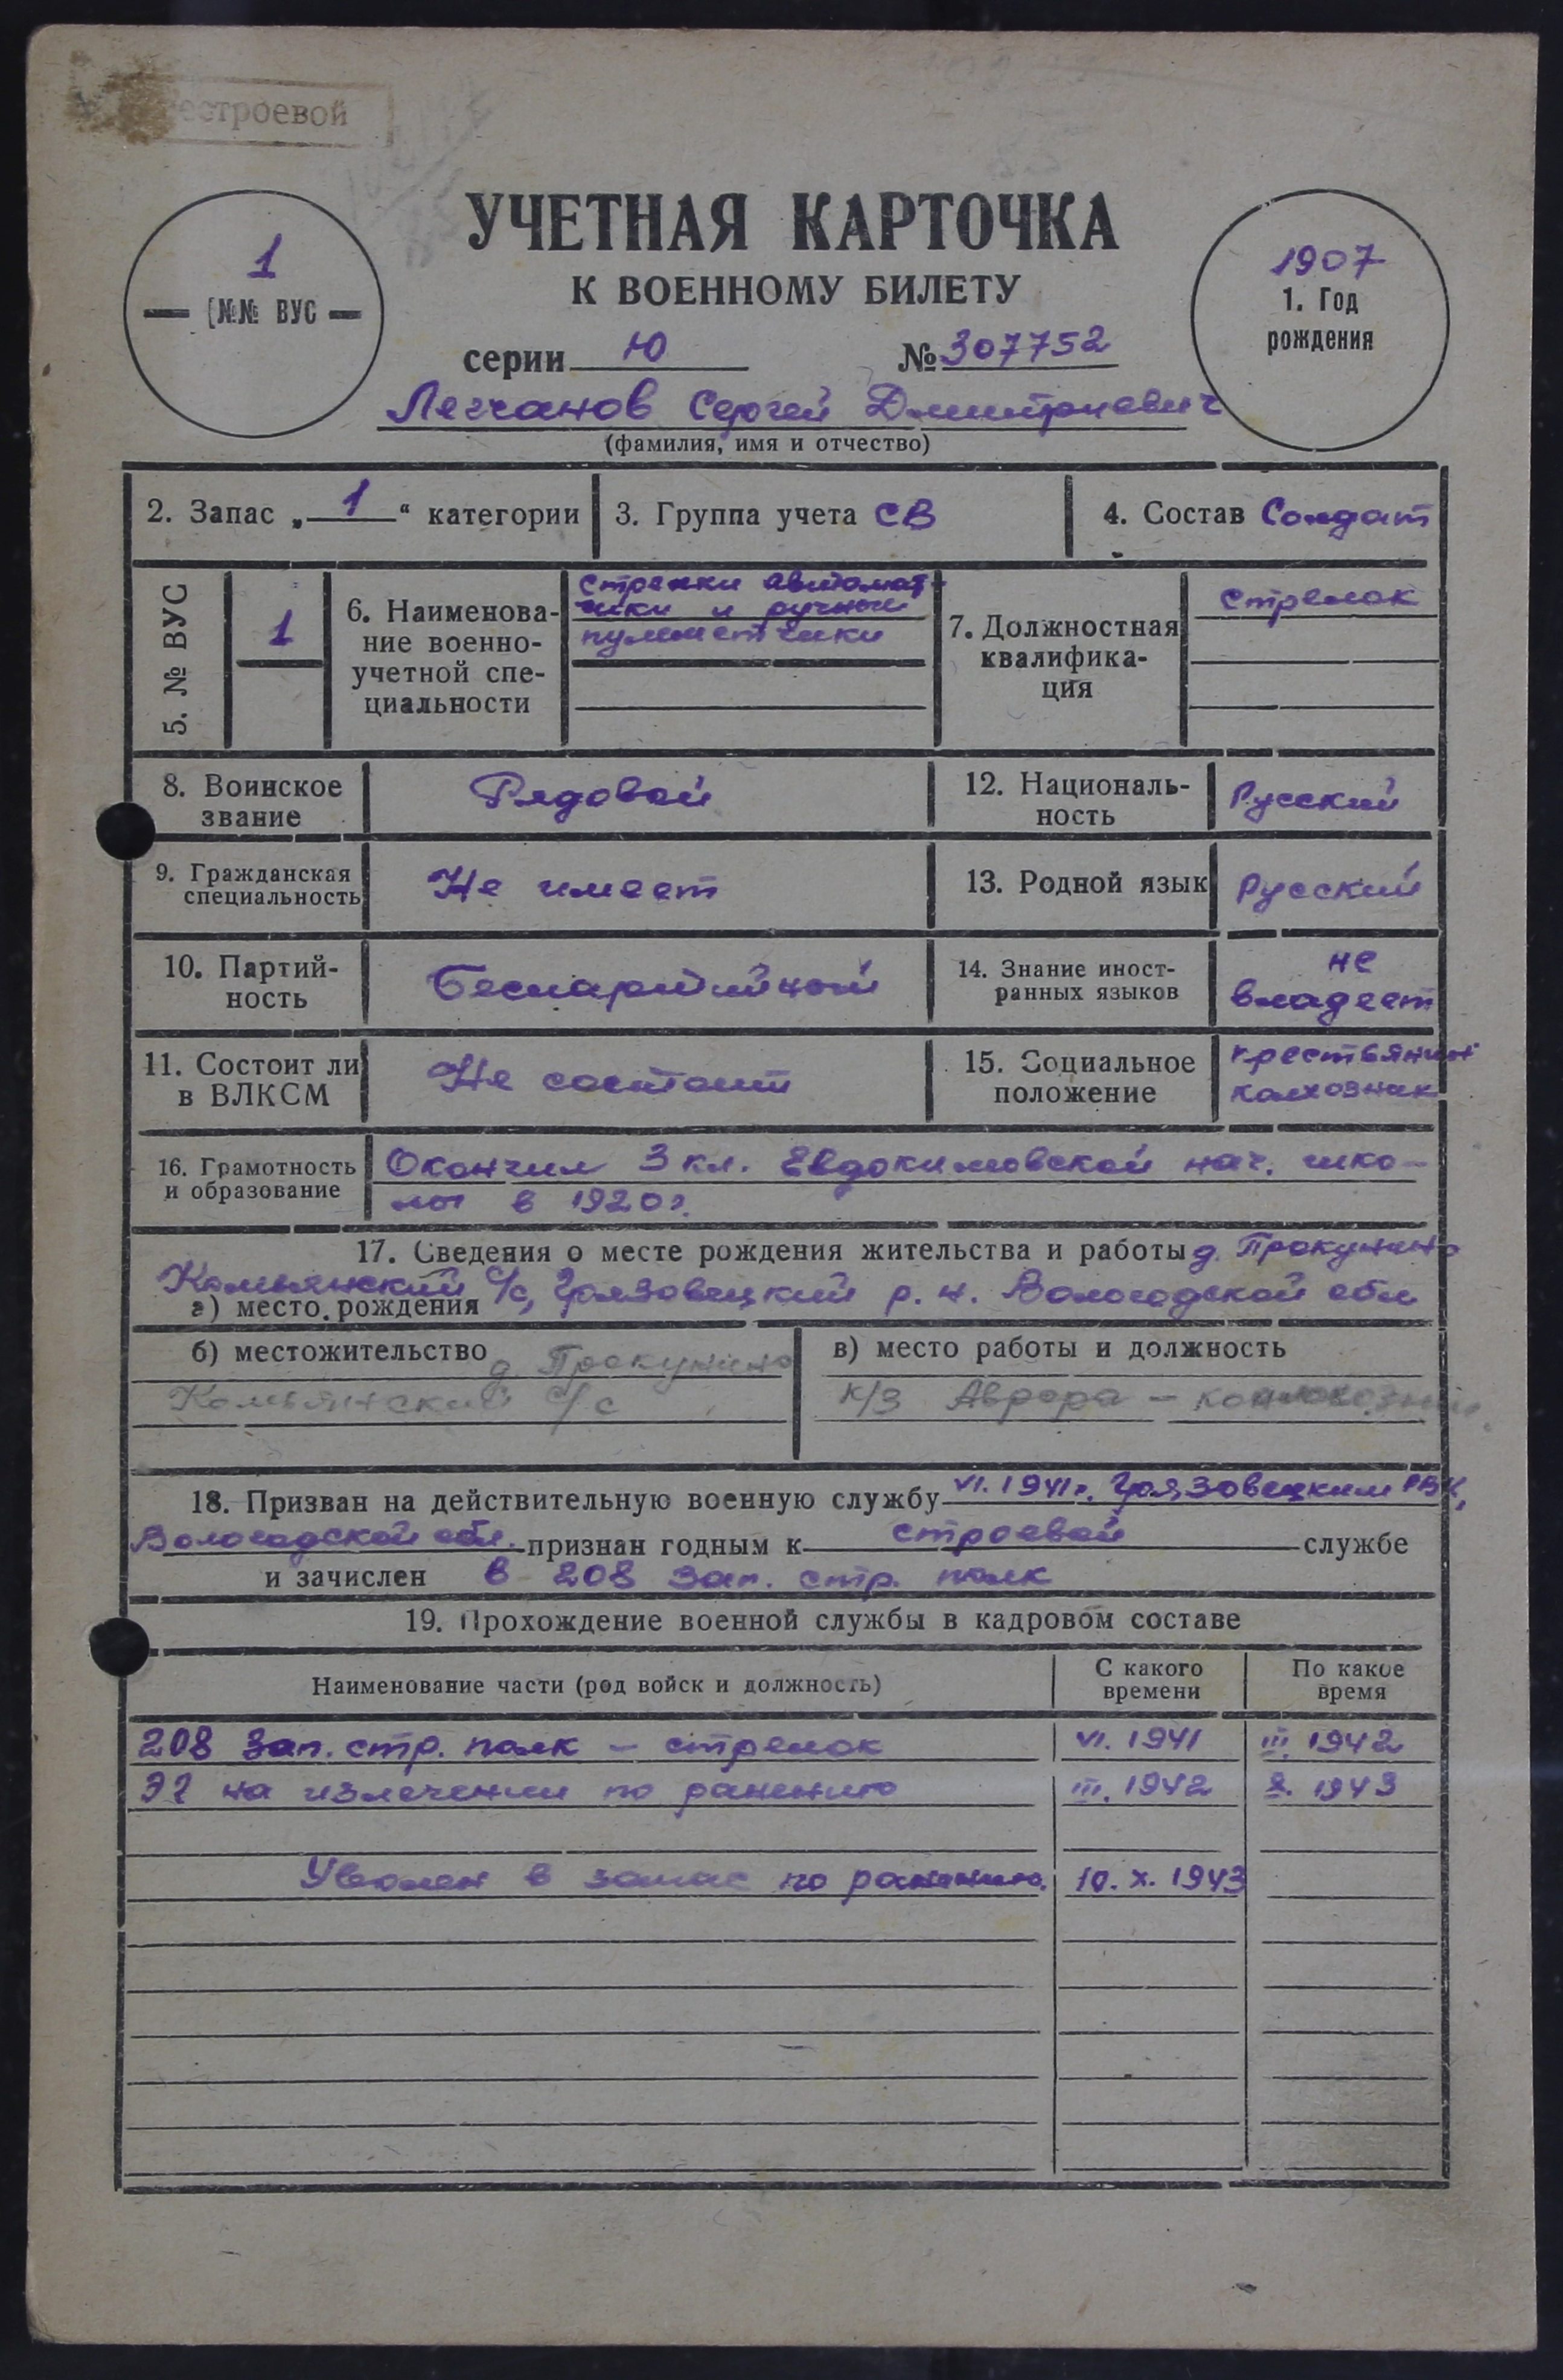 естроевой
УЧЕТНАЯ КАРТОЧКА
К ВОЕННОМУ БИЛЕТУ
1
№№ ВУС
1907
1. Год
рождения
серии Ю №307752
Легчанов Сергей Дмитриевич
(фамилия, имя и отчество)
2. Запас „ 1 “ категории
3. Группа учета СВ
4. Состав Солдат
5. № ВУС
1
6. Наименова-
ние военно-
учетной спе-
циальности
стрелки автомат-
чики и ручные
пулеметчики
7. Должностная
квалифика-
ция
стрелок
8. Воинское
звание
Рядовой
12. Националь-
ность
Русский
9. Гражданская
специальность
Не имеет
13. Родной язык
Русский
10. Партий-
ность
Беспартийный
14. Знание иност-
ранных языков
не
владеет
11. Состоит ли
в ВЛКСМ
Не состоит
15. Социальное
положение
крестьянин
колхозник
16. Грамотность
и образование
Окончил 3 кл. Евдокимовской нач. шко-
лы в 1920г.
17. Сведения о месте рождения жительства и работы д. Прокунино
Комьянский с/с, Грязовецкий р.н. Вологодской обл
а) место рождения
б) местожительство д. Прокунино
Комьянский с/с
в) место работы и должность
к/з Аврора –
18. Призван на действительную военную службу VI. 1941г. Грязовецким РВК,
Вологодской обл. признан годным к строевой службе
и зачислен в 208 зап. стр. полк
19. Прохождение военной службы в кадровом составе
Наименование части (род войск и должность)
С какого
времени
По какое
время
208 зап. стр. полк – стрелок VI. 1941 III. 1942
ЭГ на излечении по ранению III. 1942 X. 1943
Уволен в запас по ранению. 10. X. 1943